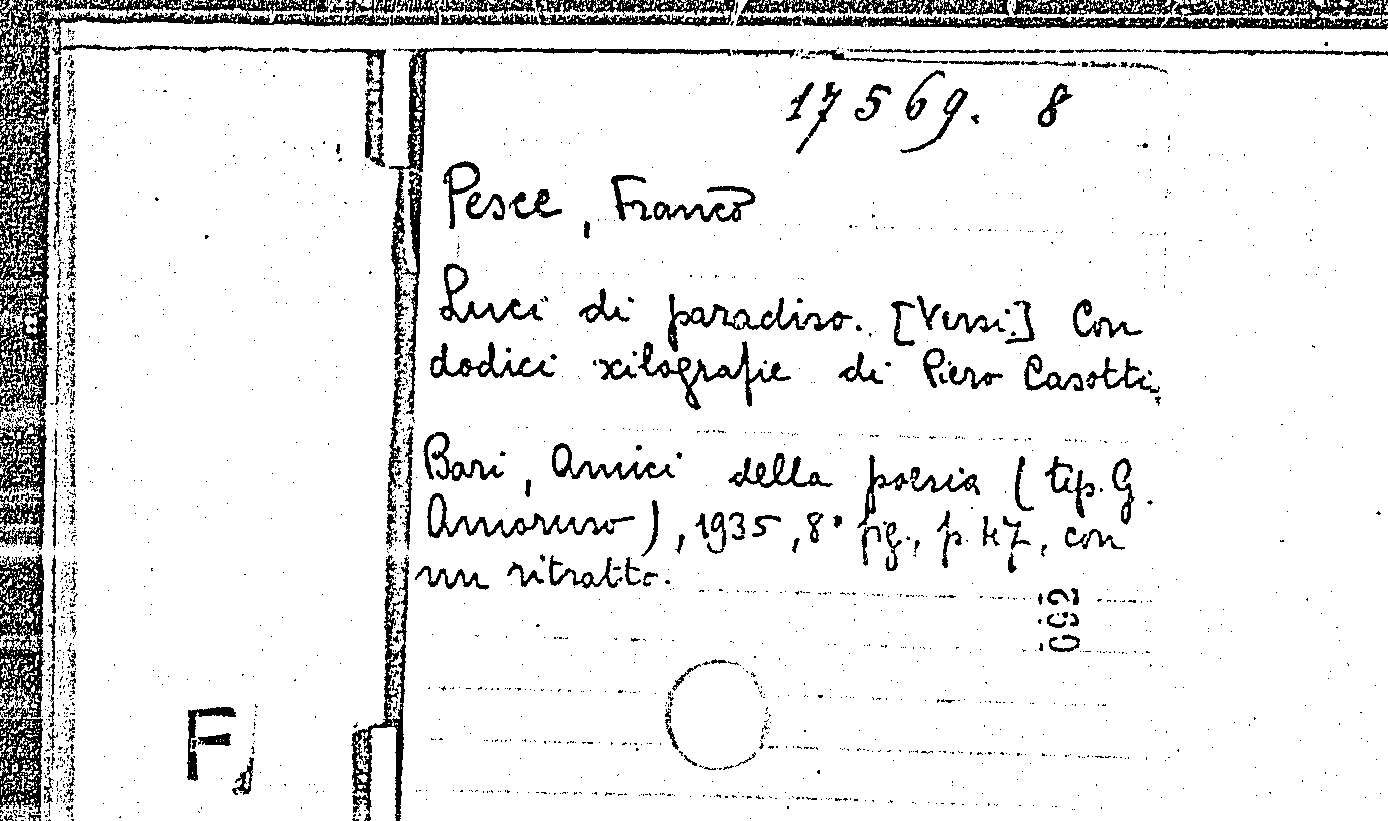 17569. 8
Pesce, Franco
Luci di paradiso. [Versi.] Con
dodici xilografie di Piero Casotti.
Bari, Amici della poesia (tip. G.
Amoruso), 1935, 8° fig., p. 47, con
un ritratto.
F